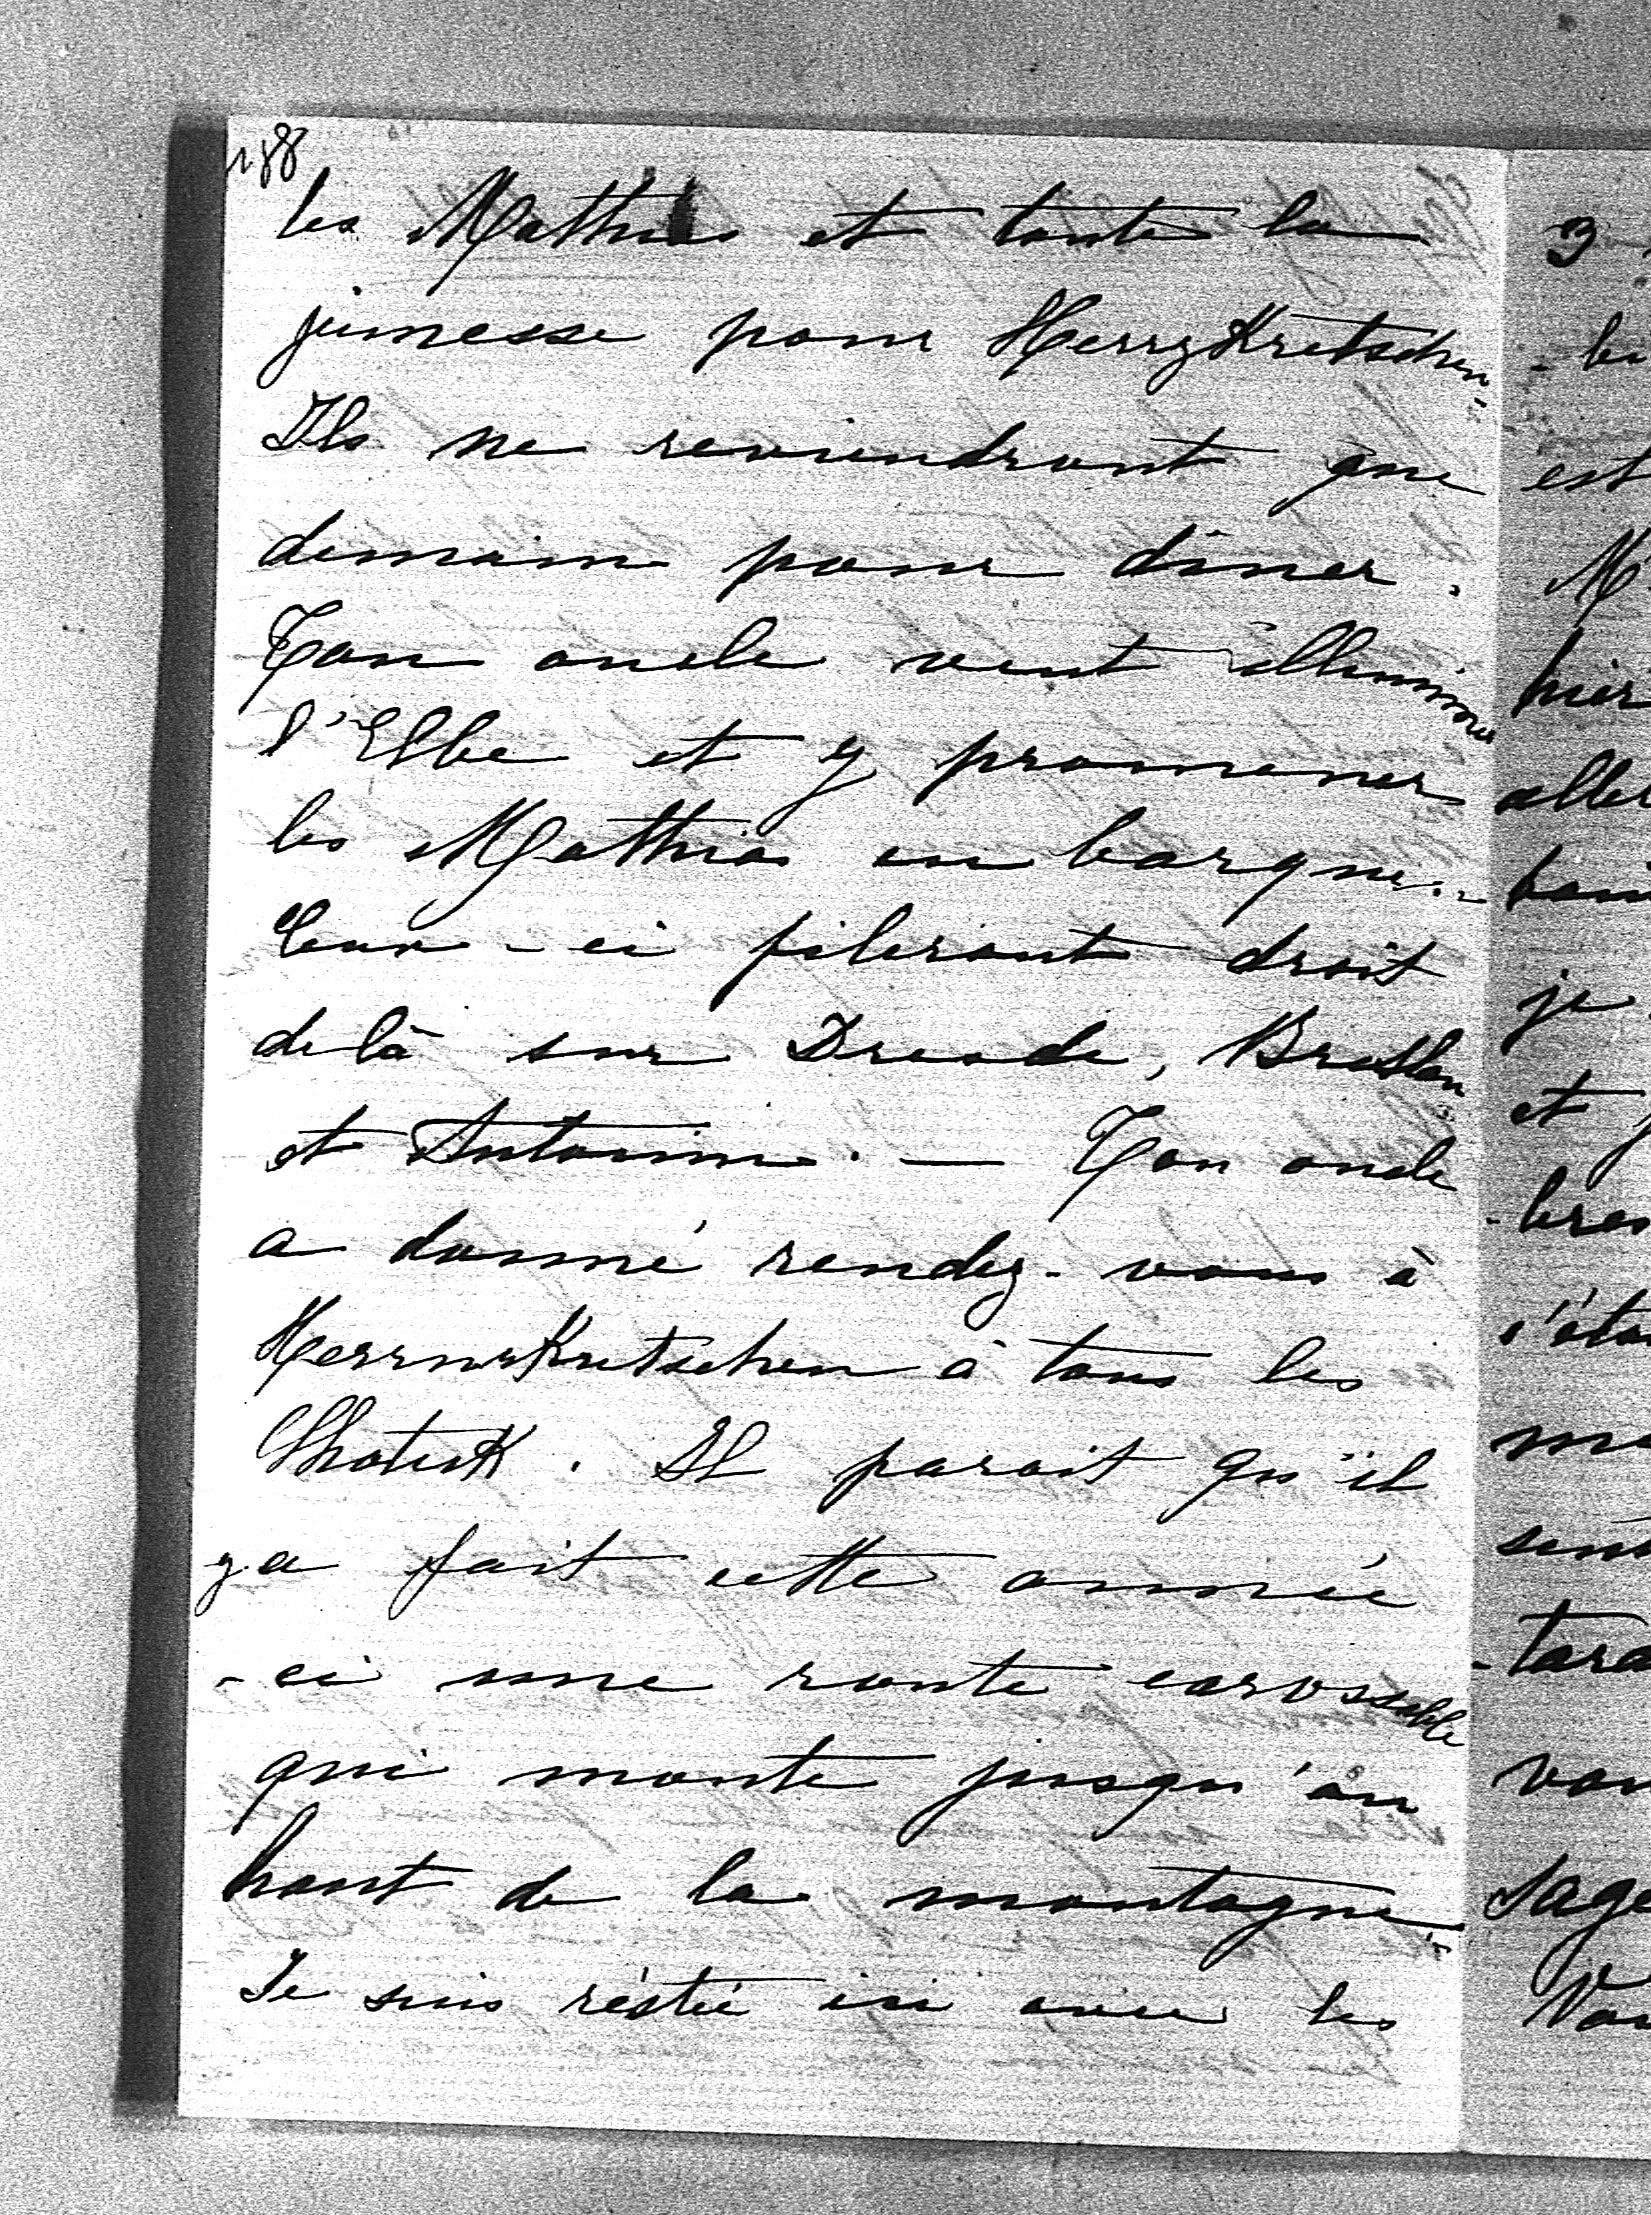 188
les Mathias et toute la
jeunesse pour HerrzKretschen-
Ils ne reviendront que
demain pour dîner.
Ton oncle veut illuminer
l'Elbe et y promener
les Mathias en barque.-
Ceux-ci fileront droit
delà sur Dresde, Breslau
et Antonin. — Ton oncle
a donné rendez-vous à
HerrnsKretschen à tous les
Chotek. Il parait qu'il
y a fait cette année
-ci une route carossable
qui monte jusqu'au
haut de la montagne.-
Je suis réstée ici avec les
3
est
hier
aller
je
et
s'éta
sent
-tard
vou